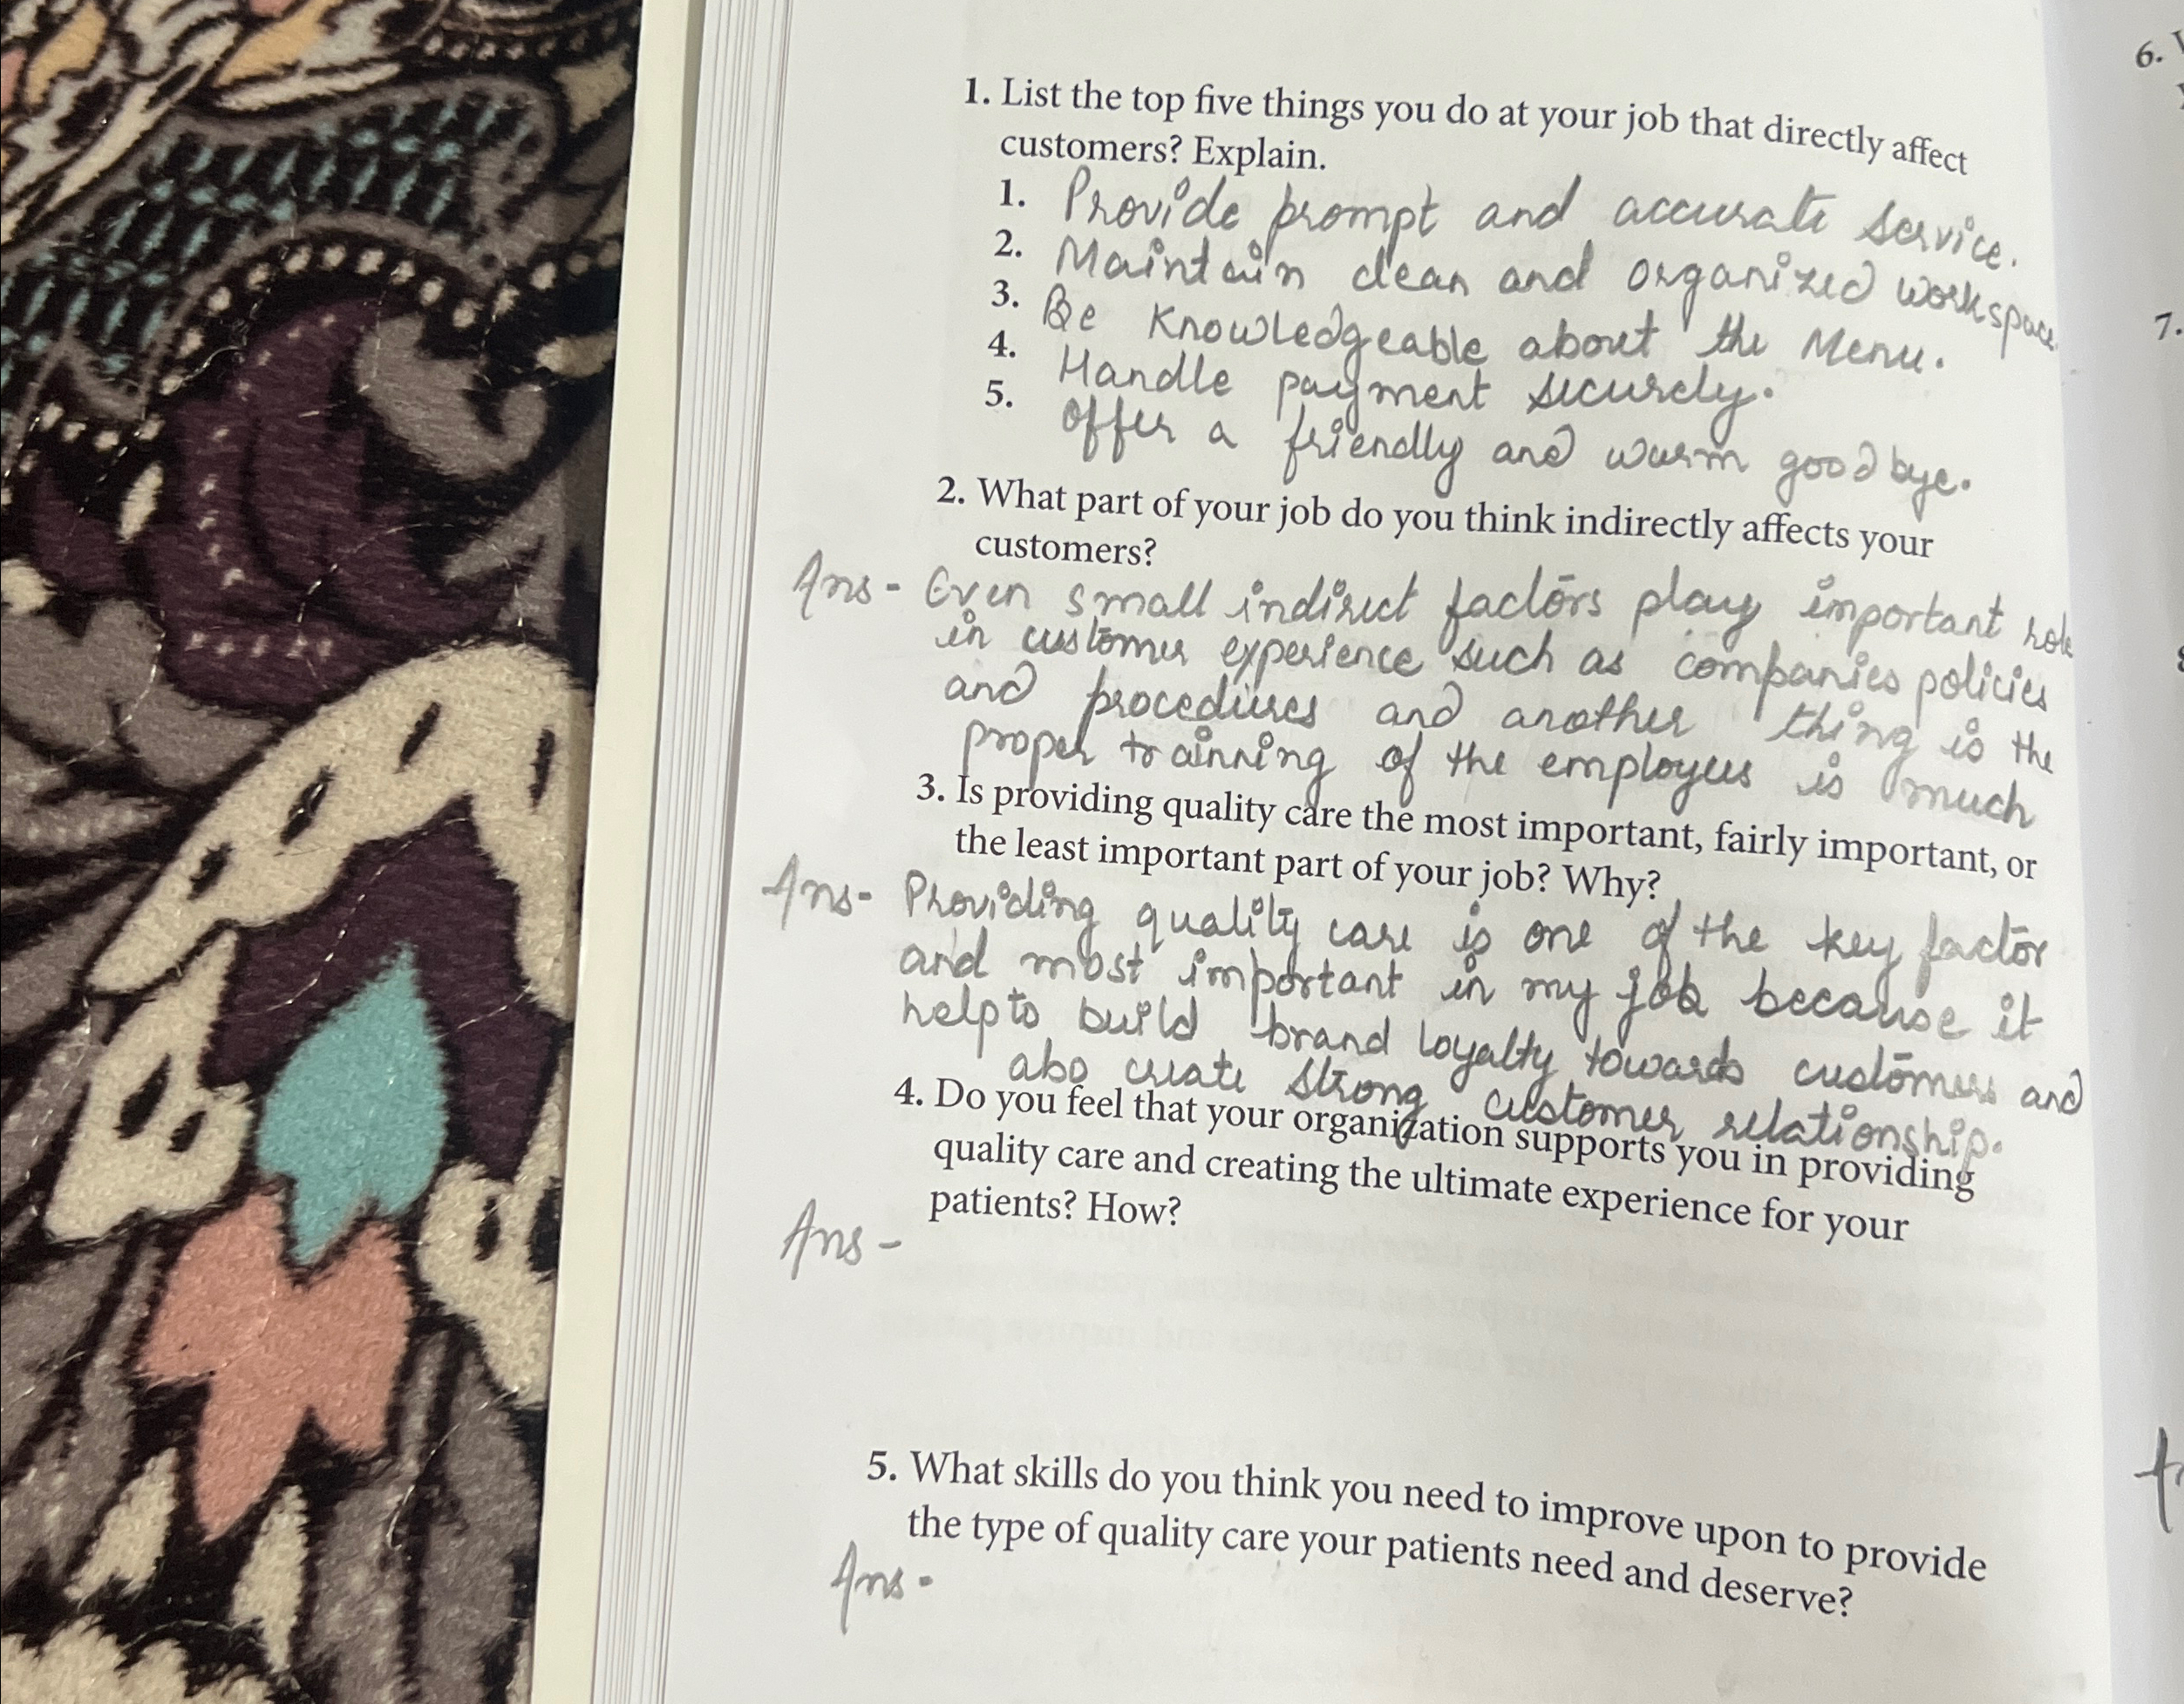 1. List the top five things you do at your job that directly affect
customers? Explain.
1. Provide prompt and accurate service.
2. Maintain clean and organized workspace
3. Be Knowledgeable about the Menu.
4. Handle payment securely.
5. offer a friendly and warm goodbye.
2. What part of your job do you think indirectly affects your
customers?
Ans - Even small indirect factors play important role
in customer experience such as companies policies
and procedures and another thing is the
proper trainning of the employees is much
3. Is providing quality care the most important, fairly important, or
the least important part of your job? Why?
Ans- Providing quality care is one of the key factor
and most important in my job because it
help to build brand loyalty towards customers and
also create strong customer relationship.
4. Do you feel that your organization supports you in providing
quality care and creating the ultimate experience for your
patients? How?
Ans -
5. What skills do you think you need to improve upon to provide
the type of quality care your patients need and deserve?
Ans -
6.
7.